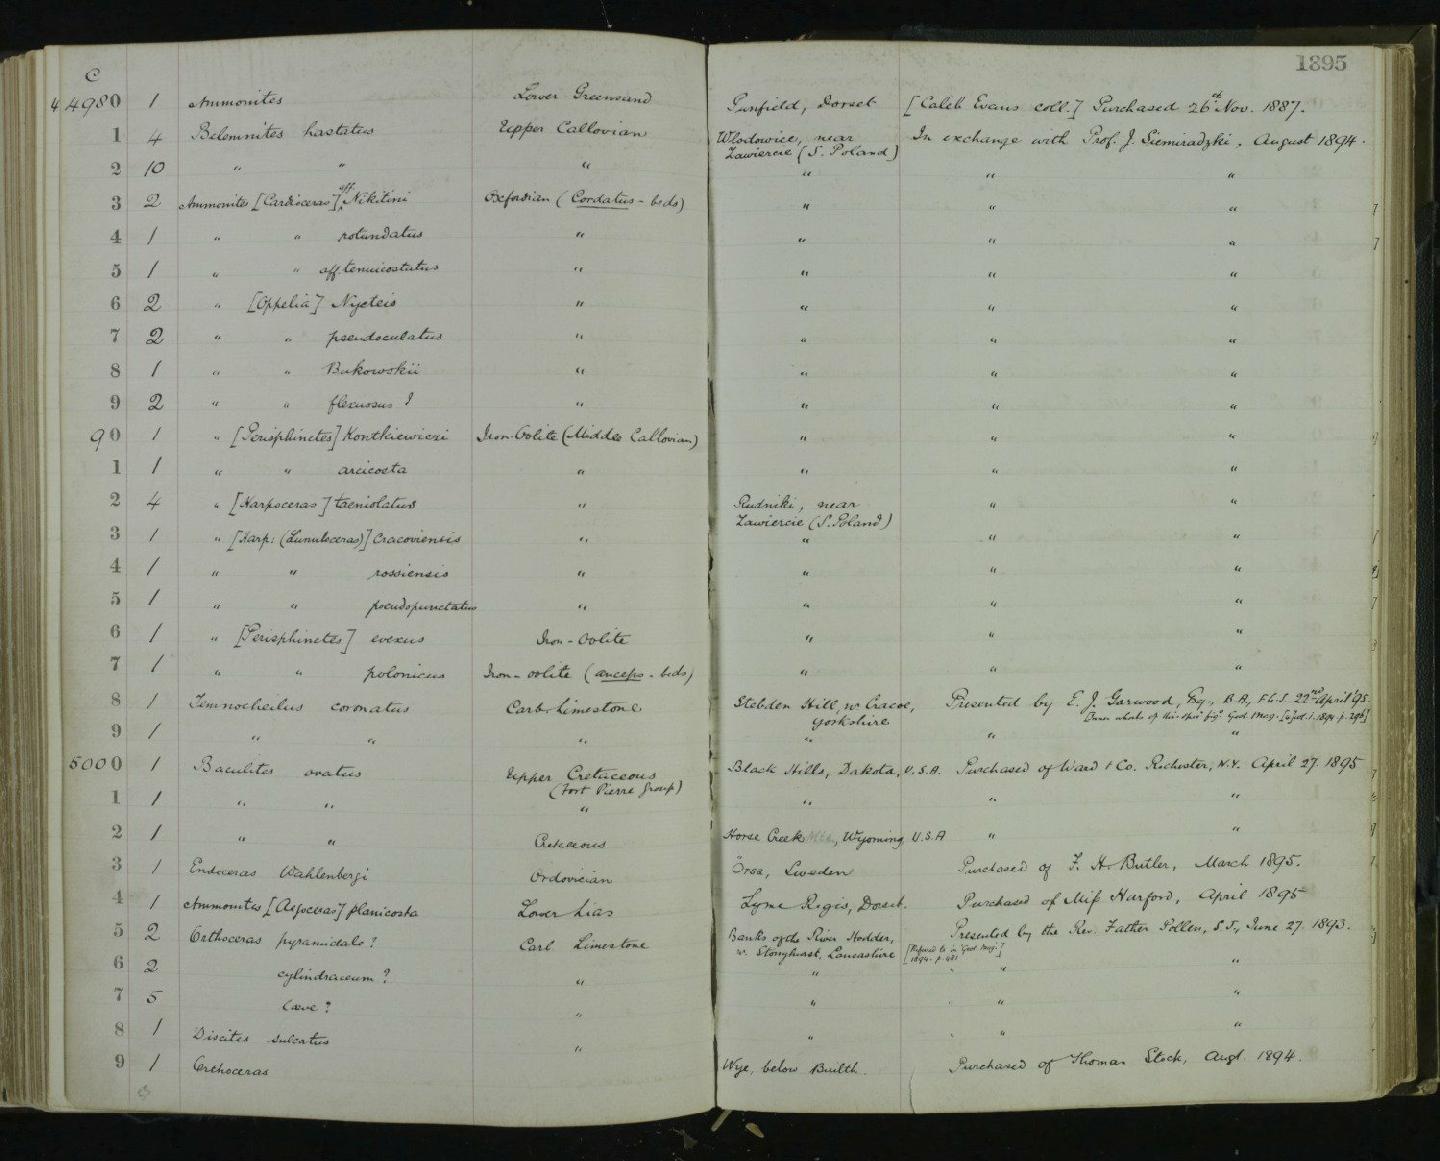 1895
C
44980 1 Ammonites Lower Greensand Punfield, Dorset [Caleb Evans coll.] Purchased 26th Nov. 1887.
1 4 Belemnites hastatus Upper Callovian Wlodowice, near In exchange with Prof. J. Siemiradzki, August 1894.
Zawiercie (S. Poland)
2 10 " " " " " "
3 2 Ammonites [Cardioceras] aff. Nikitini Oxfordian (Cordatus-beds) " " "
4 1 " " rotundatus " " " "
5 1 " " aff. tenuicostatus " " " "
6 2 " [Oppelia] Nycteis " " " "
7 2 " " pseudoculatus " " " "
8 1 " " Bukowskii " " " "
9 2 " " flexuosus ? " " " "
90 1 " [Perisphinctes] Kontkiewiczi Iron-Oolite (Middle Callovian) " " "
1 1 " " arcicosta " " " "
2 4 " [Harpoceras] taeniolatus " Rudniki, near " "
Zawiercie (S. Poland)
3 1 " [Harp: (Lunuloceras)] Cracoviensis " " " "
4 1 " " rossiensis " " " "
5 1 " " pseudopunctatus " " " "
6 1 " [Perisphinctes] evexus Iron-Oolite " " "
7 1 " " polonicus Iron-oolite (anceps-beds) " " "
8 1 Temnocheilus coronatus Carb. Limestone Stebden Hill, nr Cracoe, Presented by E. J. Garwood, Esq., B.A., F.G.S. 22nd April '95
Yorkshire
9 1 " " " " " "
5000 1 Baculites ovatus Upper Cretaceous Black Hills, Dakota, U.S.A. Purchased of Ward & Co. Rochester, N.Y. April 27. 1895
(Fort Pierre Group)
1 1 " " " " " "
2 1 " " Cretaceous Horse Creek, Wyoming U.S.A " "
3 1 Endoceras Wahlenbergi Ordovician Sweden Purchased of F. H. Butler, March 1895.
4 1 Ammonites [Aegoceras] planicosta Lower Lias Lyme Regis, Dorset. Purchased of Miss Harford, April 1895
5 2 Orthoceras pyramidale ? Carb Limestone Banks of the River Hodder, Presented by the Rev. Father Pollen, S.J., June 27. 1893.
nr. Stonyhurst, Lancashire [Referred to in Geol Mag.
1894. p.
6 2 cylindraceum ? " " " " "
7 5 laeve ? " " " "
8 1 Discites sulcatus " " " "
9 1 Orthoceras Wye, below Builth. Purchased of Thomas Stock, Augt. 1894.